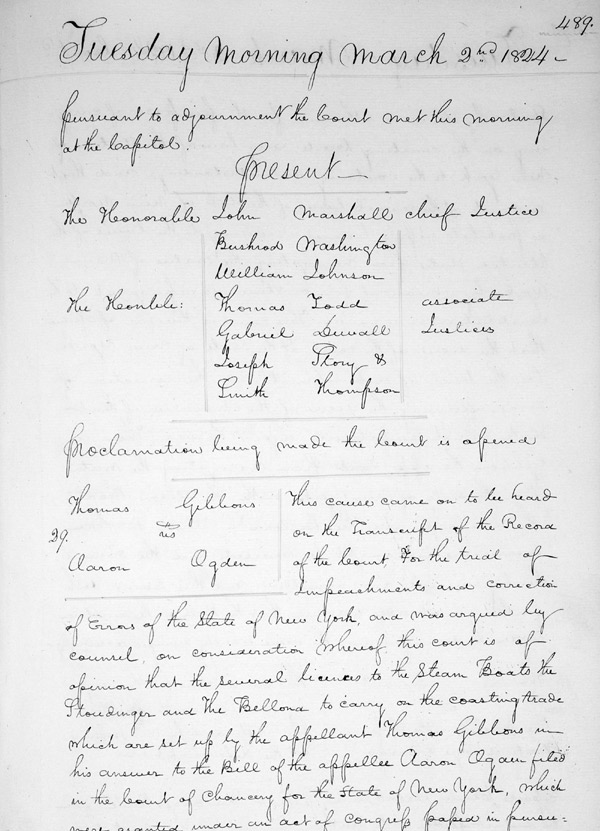 489.
Tuesday Morning March 2nd 1824 -
Pursuant to adjournment the Court met this morning
at the Capitol.
Present
The Honorable John Marshall chief Justice
Bushrod Washington
William Johnson
The Honble: Thomas Todd associate
Gabriel Duvall Justices
Joseph Story &
Smith Thompson
Proclamation being made the Court is opened
Thomas Gibbons This cause came on to be heard
vs on the Transcript of the Record
29.
Aaron Ogden of the Court For the trial of
Impeachments and correction
of Errors of the State of New York, and was argued by
counsel, on consideration whereof this court is of
opinion that the several licences to the Steam Boats the
Stoudinger and The Bellona to carry on the coasting trade
which are set up by the appellant Thomas Gibbons in
his answer to the Bill of the appellee Aaron Ogden filed
in the Court of Chancery for the State of New York, which
were granted under an act of Congress passed in pursu=